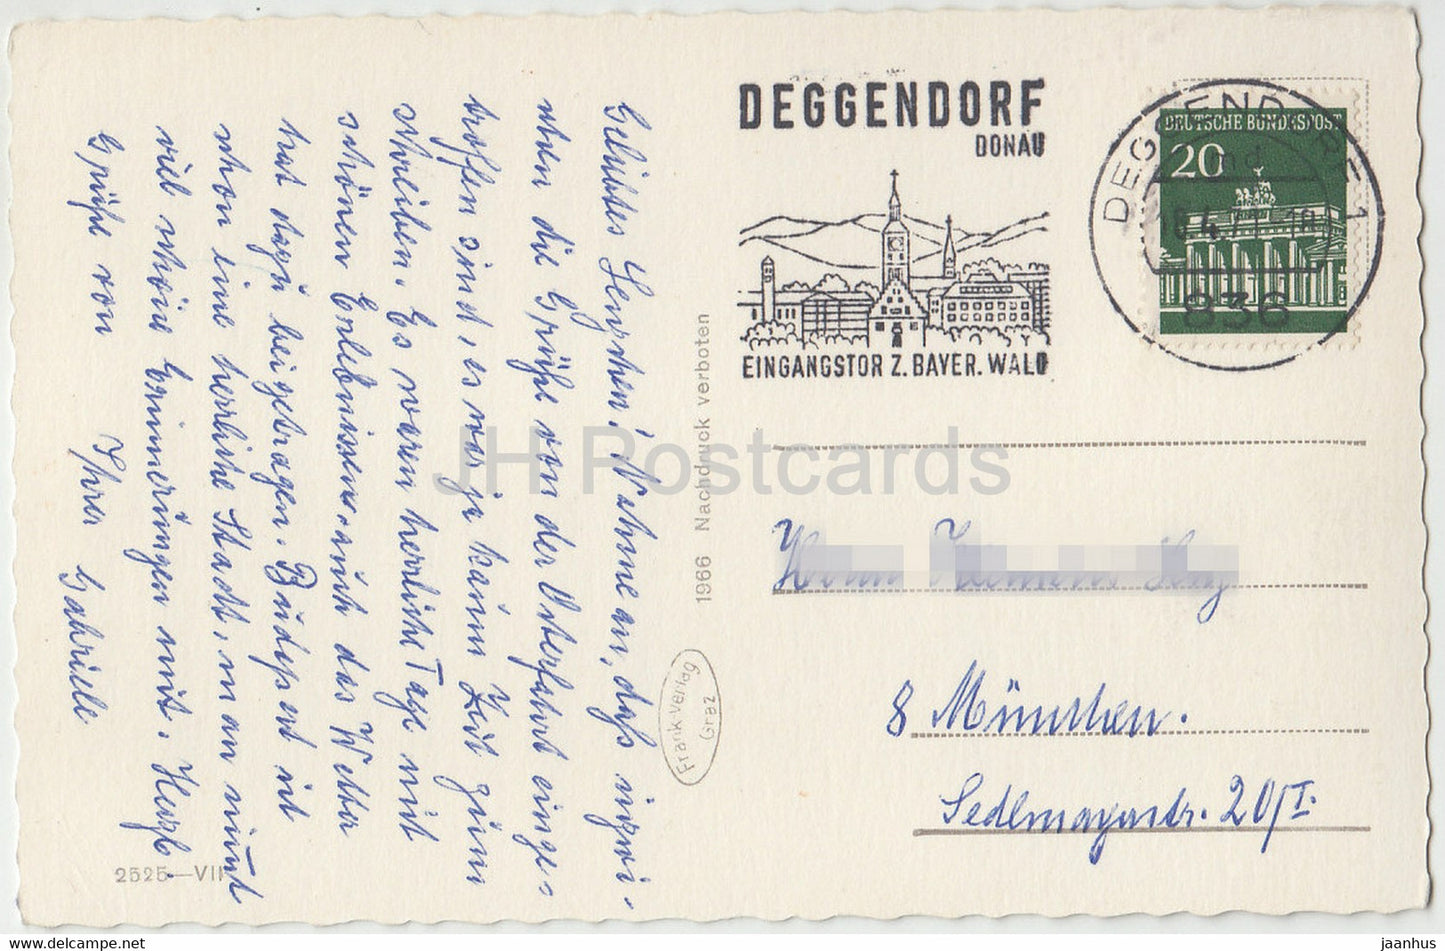 DEGGENDORF
DONAU
EINGANGSTOR Z. BAYER. WALD
DEGGENDORF 1
836
DEUTSCHE BUNDESPOST
20
Geliebtes Lenzchen! Nehme an, daß inzwi-
schen die Grüße von der Osterfahrt einge-
troffen sind, es war ja kaum Zeit zum
Schreiben. Es waren herrliche Tage mit
schönen Erlebnissen, auch das Wetter
hat dazu beigetragen. Budapest ist
schon eine herrliche Stadt, man nimmt
viel schöne Erinnerungen mit. Herzl.
Grüße von Ihrer Gabriele
1966 Nachdruck verboten
Frank Verlag
Graz
2525—VII
Herrn
8 München.
Sedlmayerstr. 20/I.
JH Postcards
www.delcampe.net
jaanhus